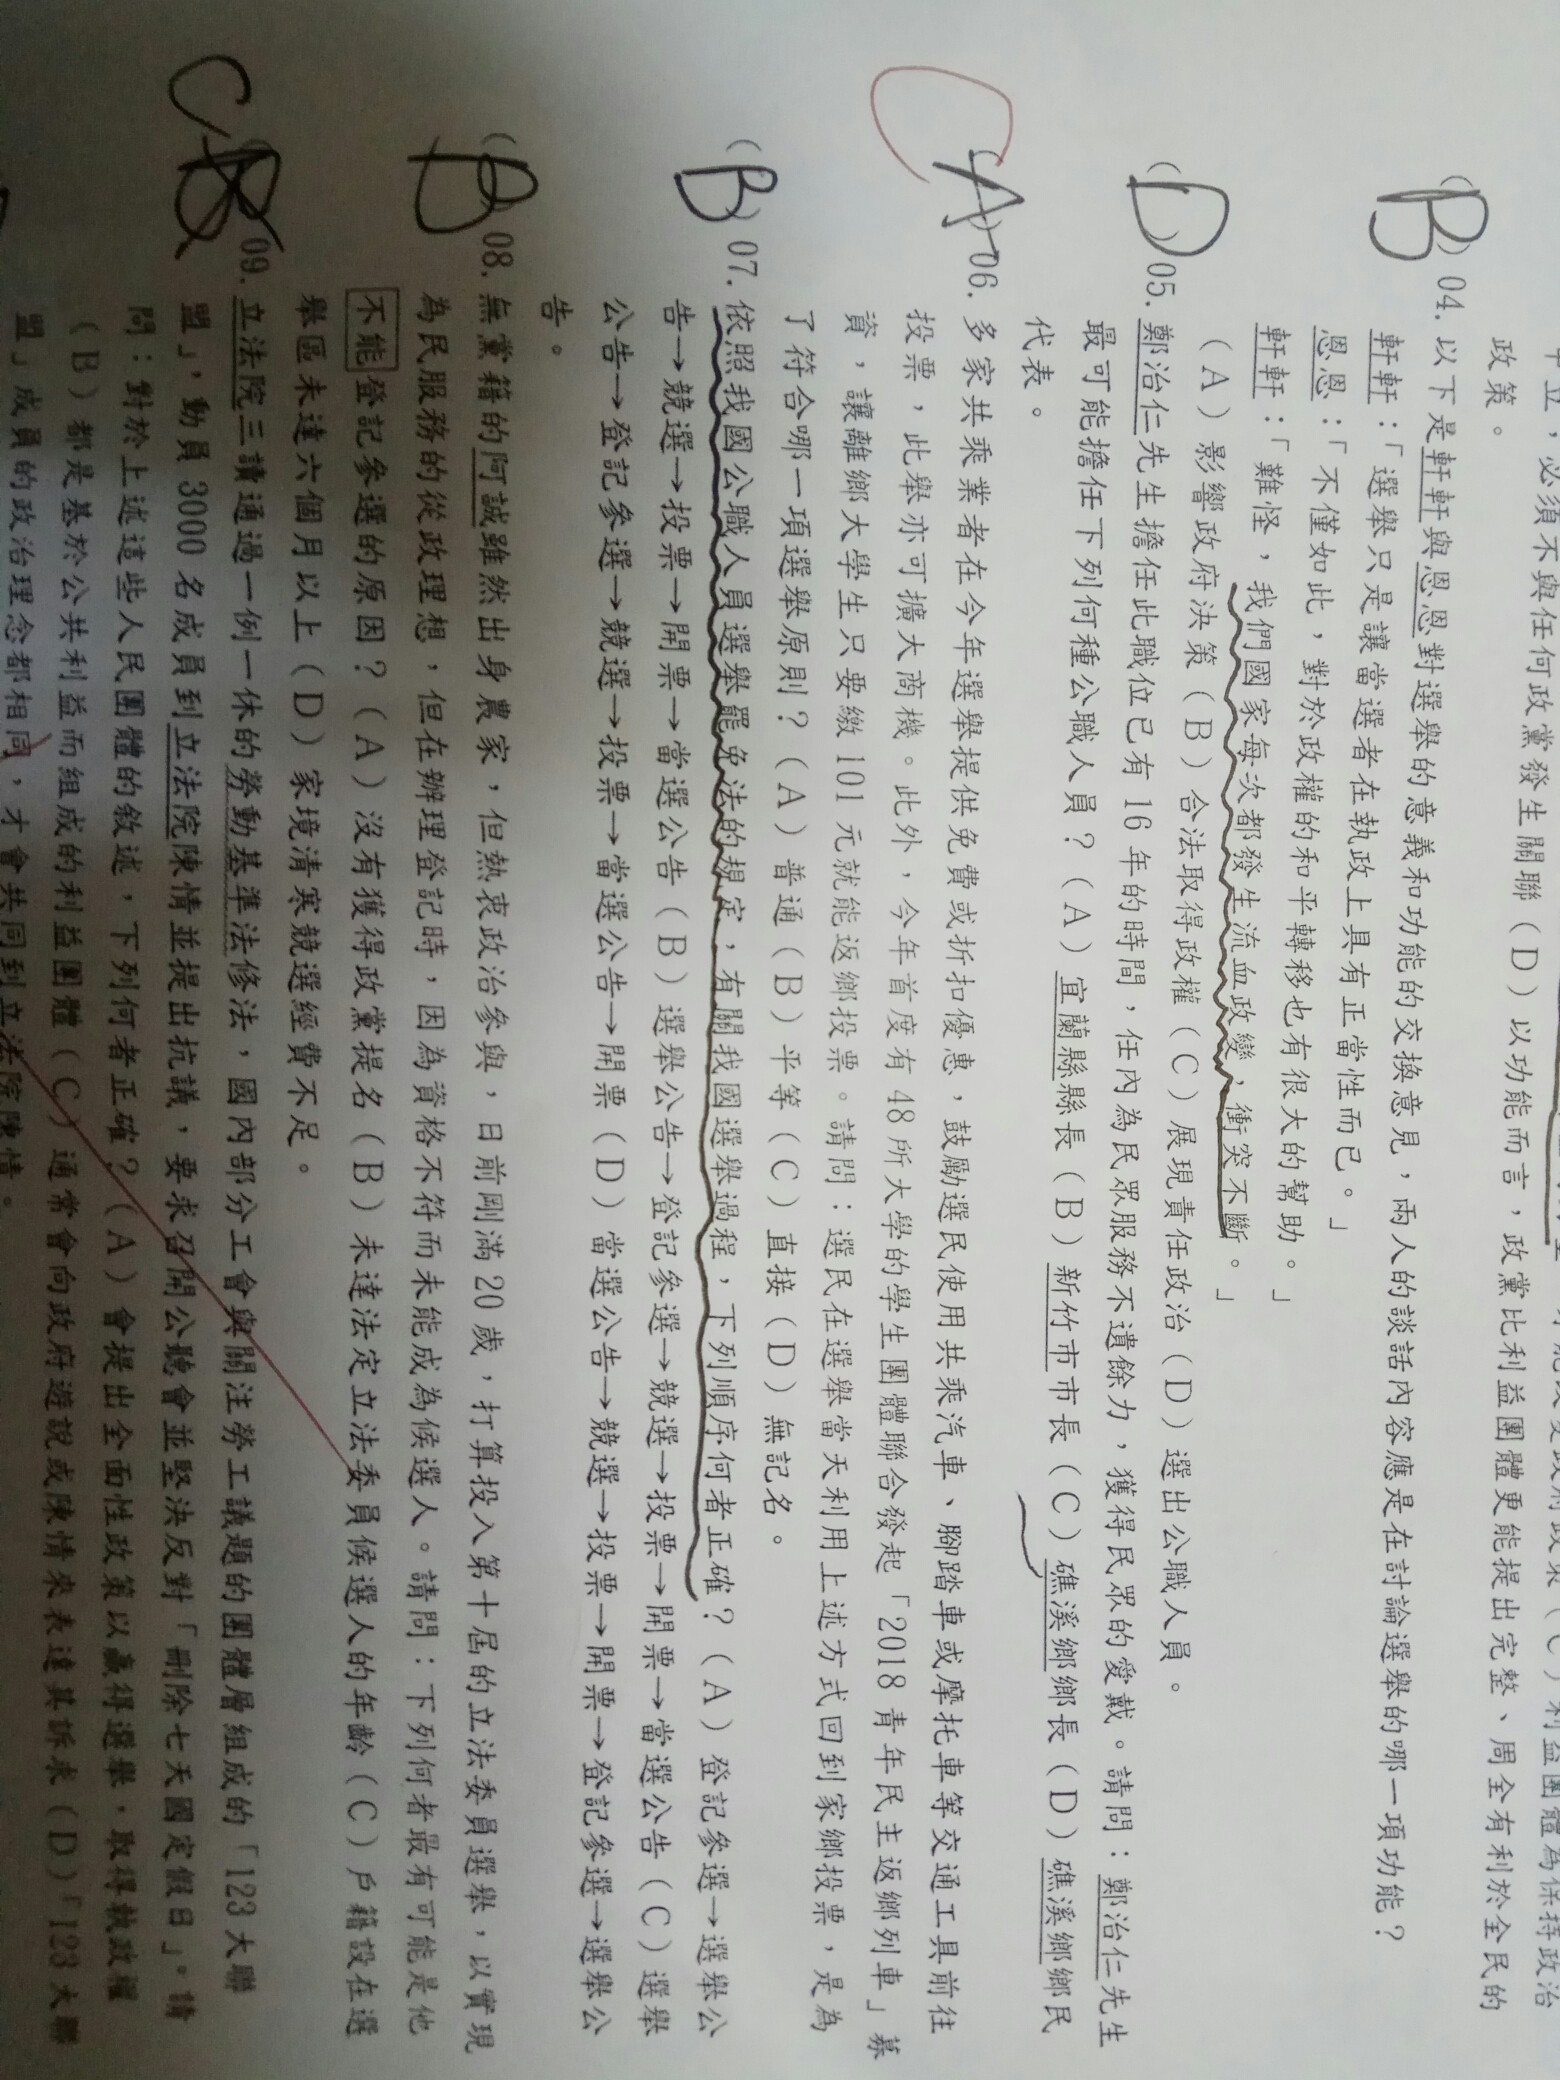 政策。
(B)04.以下是軒軒與恩恩對選舉的意義和功能的交換意見，兩人的談話內容應是在討論選舉的哪一項功能？
軒軒：「選舉只是讓當選者在執政上具有正當性而已。」
恩恩：「不僅如此，對於政權的和平轉移也有很大的幫助。」
軒軒：「難怪，我們國家每次都發生流血政變，衝突不斷。」
（A）影響政府決策（B）合法取得政權（C）展現責任政治（D）選出公職人員。
(D)05.鄭治仁先生擔任此職位已有16年的時間，任內為民眾服務不遺餘力，獲得民眾的愛戴。請問：鄭治仁先生
最可能擔任下列何種公職人員？（A）宜蘭縣縣長（B）新竹市市長（C）礁溪鄉鄉長（D）礁溪鄉鄉民
代表。
C
(A)06.多家共乘業者在今年選舉提供免費或折扣優惠，鼓勵選民使用共乘汽車、腳踏車或摩托車等交通工具前往
投票，此舉亦可擴大商機。此外，今年首度有48所大學的學生團體聯合發起「2018青年民主返鄉列車」募
資，讓離鄉大學生只要繳101元就能返鄉投票。請問：選民在選舉當天利用上述方式回到家鄉投票，是為
了符合哪一項選舉原則？（A）普通（B）平等（C）直接（D）無記名。
(B)07.依照我國公職人員選舉罷免法的規定，有關我國選舉過程，下列順序何者正確？（A）登記參選→選舉公
告→競選→投票→開票→當選公告（B）選舉公告→登記參選→競選→投票→開票→當選公告（C）選舉
公告→登記參選→競選→投票→當選公告→開票（D）當選公告→競選→投票→開票→登記參選→選舉公
告。
(B)08.無黨籍的阿誠雖然出身農家，但熱衷政治參與，日前剛滿20歲，打算投入第十屆的立法委員選舉，以實現
為民服務的從政理想，但在辦理登記時，因為資格不符而未能成為候選人。請問：下列何者最有可能是他
不能登記參選的原因？（A）沒有獲得政黨提名（B）未達法定立法委員候選人的年齡（C）戶籍設在選
舉區未達六個月以上（D）家境清寒競選經費不足。
C
09.立法院三讀通過一例一休的勞動基準法修法，國內部分工會與關注勞工議題的團體層組成的「123大聯
盟」，動員3000名成員到立法院陳情並提出抗議，要求召開公聽會並堅決反對「刪除七天國定假日」。請
問：對於上述這些人民團體的敘述，下列何者正確？（A）會提出全面性政策以贏得選舉，取得執政權
（B）都是基於公共利益而組成的利益團體（C）通常會向政府遊說或陳情來表達其訴求（D）「123大聯
盟」成員的政治理念都相同，才會共同到立法院陳情。